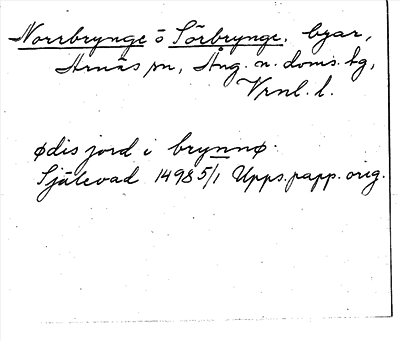 Norrbrynge o Sörbrynge, byar,
Arnäs sn, Ång. n. doms. hg,
Vrnl. l.
ødis jord i brynnø.
Själevad 1498 5/1 Upps. papp. orig.